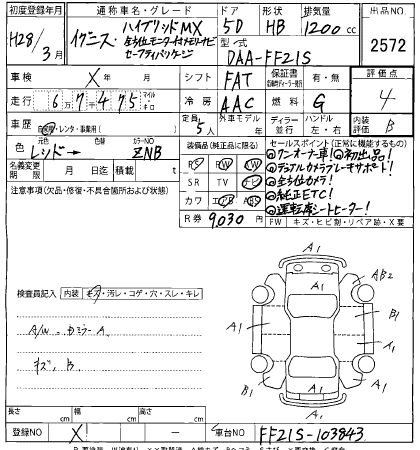 初度登録年月 通称車名・グレード ドア 形状 排気量 出品NO
H28/3月 イグニス ハイブリッドMX 5D HB 1200cc 2572
全方位モニター付メモリナビ
セーフティパッケージ
型式 DAA-FF21S
車検 X年 月 シフト FAT 保証書 有・無 評価点
走行 6万7千475 マイル キロ 冷房 AAC 燃料 G 4
車歴 自家用・レンタ・事業用( ) 定員 5人 外車モデル 年 ディーラー 並行 ハンドル 左・右 内装評価 B
色 元色 レッド→ 色替 カラーNO ZNB
装備品(純正品に限る)
セールスポイント(正常に機能するもの)
名義変更期限 月 日迄 積載 t
PS PW AW
SR TV ナビ
カワ エアB ABS
R券 9,030円
①ワンオーナー車!②初出品!
③デュアルカメラブレーキサポート!
④全方位カメラ!
⑤純正ETC!
⑥運転席シートヒーター!
注意事項(欠品・修復・不具合箇所および状態)
FW キズ・ヒビ割・リペア跡・X要
検査員記入 内装 キズ・汚レ・コゲ・穴・スレ・キレ
A/W
キズ, B
A1
A1
AB2
A1
B1
A1
A1
B1
A1
A1
長さ cm 幅 cm 高さ cm
登録NO X! 車台NO FF21S-103843